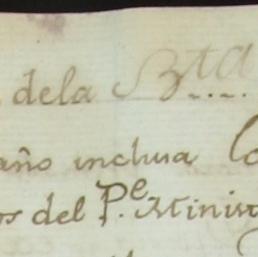 dela Bta
año inclusa
os del Pe. Minist